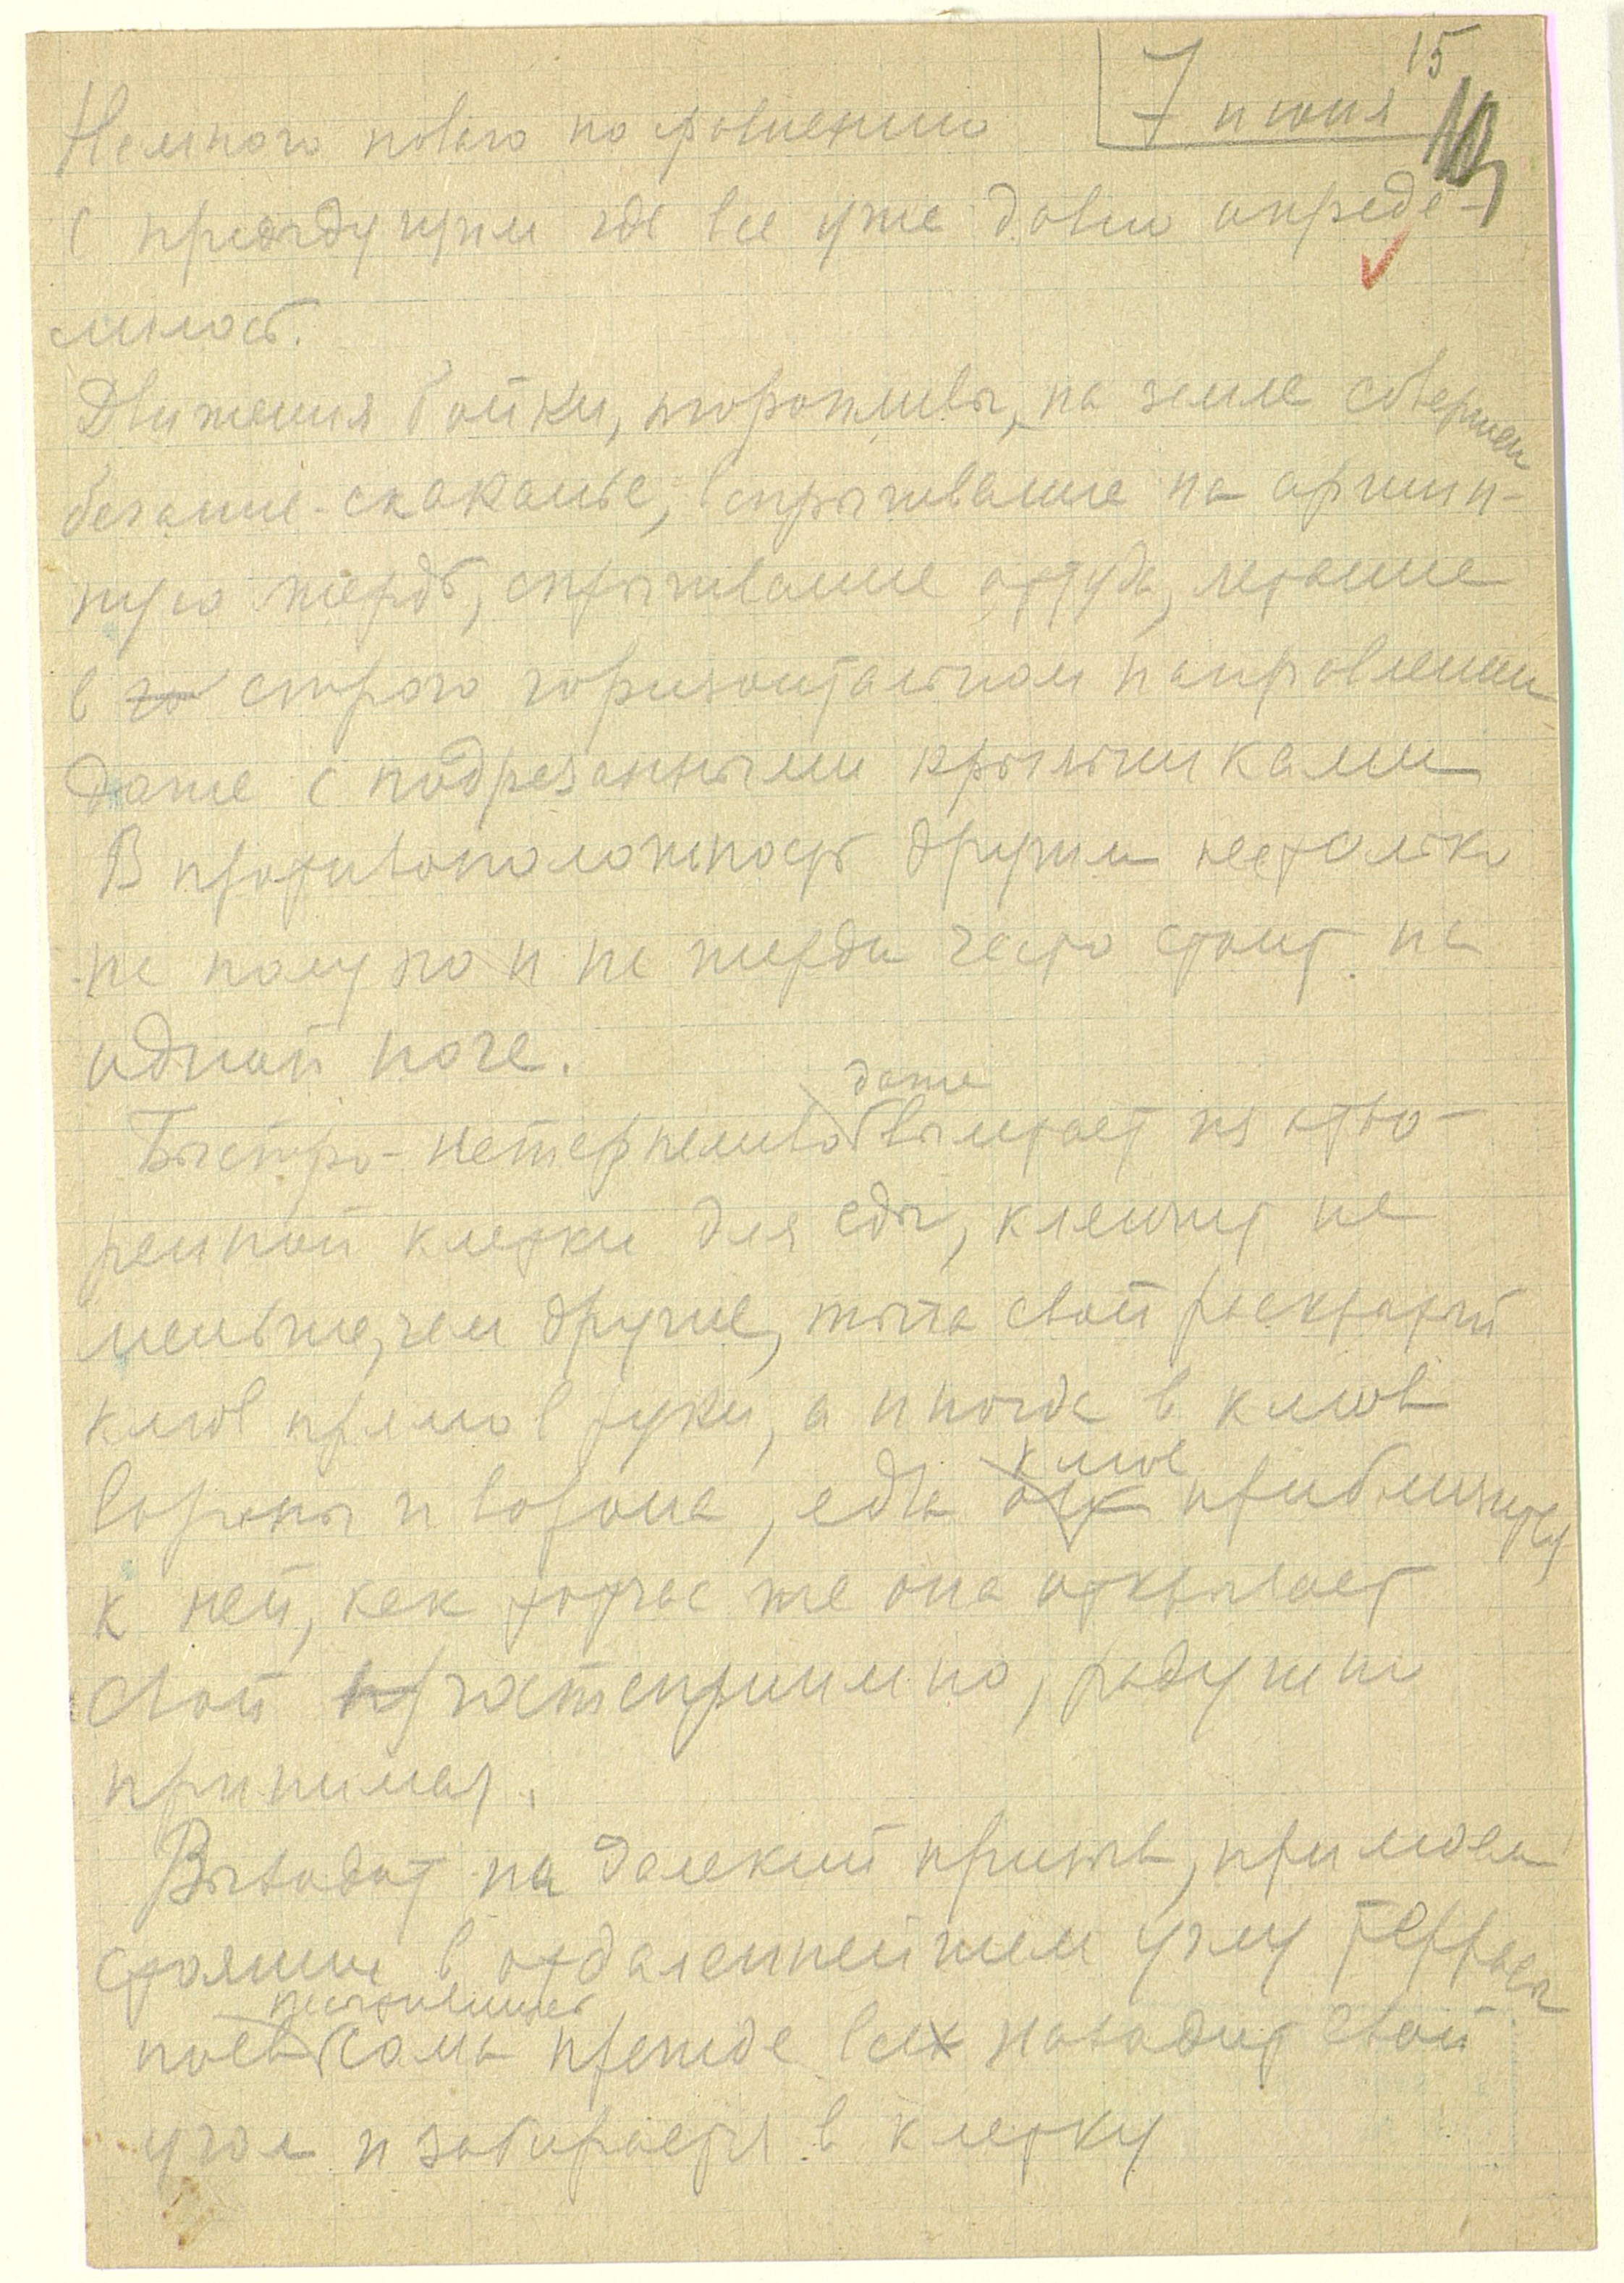 15
7 июня
Немного нового по сравнению
с предыдущим где все уже давно опреде-
лилось.
Движения бойки, торопливы, на земле соверщен
бегание-скаканье, вспрыгивание на аршин-
ную жердь, спрыгивание оттуда, летание
в го строго горизонтальном направлении
даже с подрезанными крылышками
В противоположность другим не только
на полу но и на жерди часто стоит на
одной ноге.
Быстро-нетерпеливо даже вылетает из отво-
ренной клетки для еды, клянчит не
меньше, чем другие, тыча свой раскрытый
клюв прямо в руки, а иногда в клюв
вороны и ворона, едва клюв приблизится
к ней, как тотчас же она открывает
свой гостеприимно, радушно
принимая.
Выходит на далекий призыв, при моем
стоянии в отдаленнейшем углу террасы
поев сама прежде всех находит свой
угол и забирается в клетку